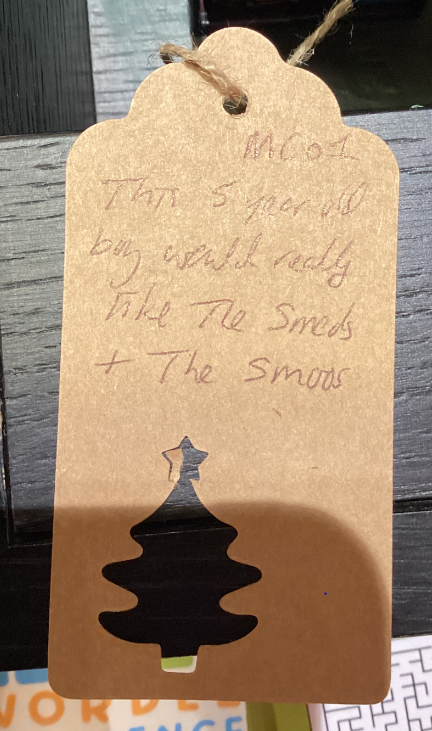 MC01
This 5 year old
boy would really
like The Smeds
+ The Smoos
WORDLE
ENCE